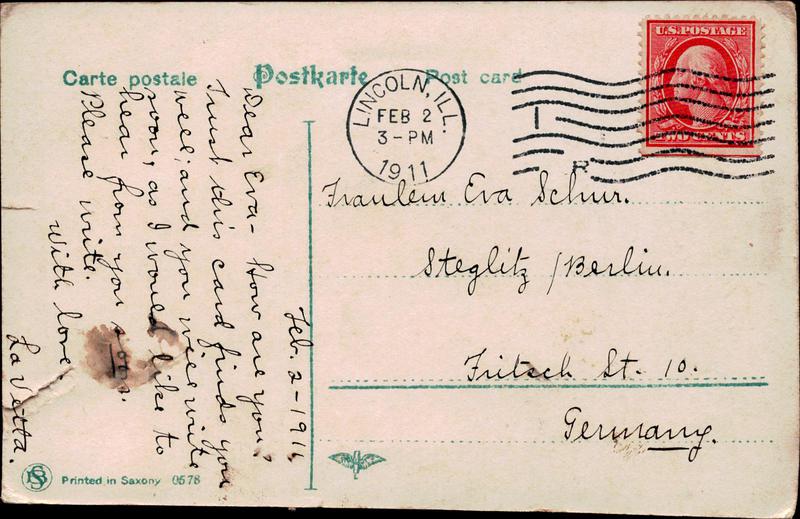 Carte postale Postkarte Post card
U.S. POSTAGE
TWO CENTS
LINCOLN, ILL.
FEB 2
3-PM
1911
R
Feb. 2-1911
Dear Eva- How are you?
Trust this card finds you
well; and you will write
soon, as I would like to
hear from you soon.
Please write.
With love.
La Vetta.
Fraulein Eva Schur.
Steglitz / Berlin.
Fritsch St. 10.
Germany.
Printed in Saxony 0578